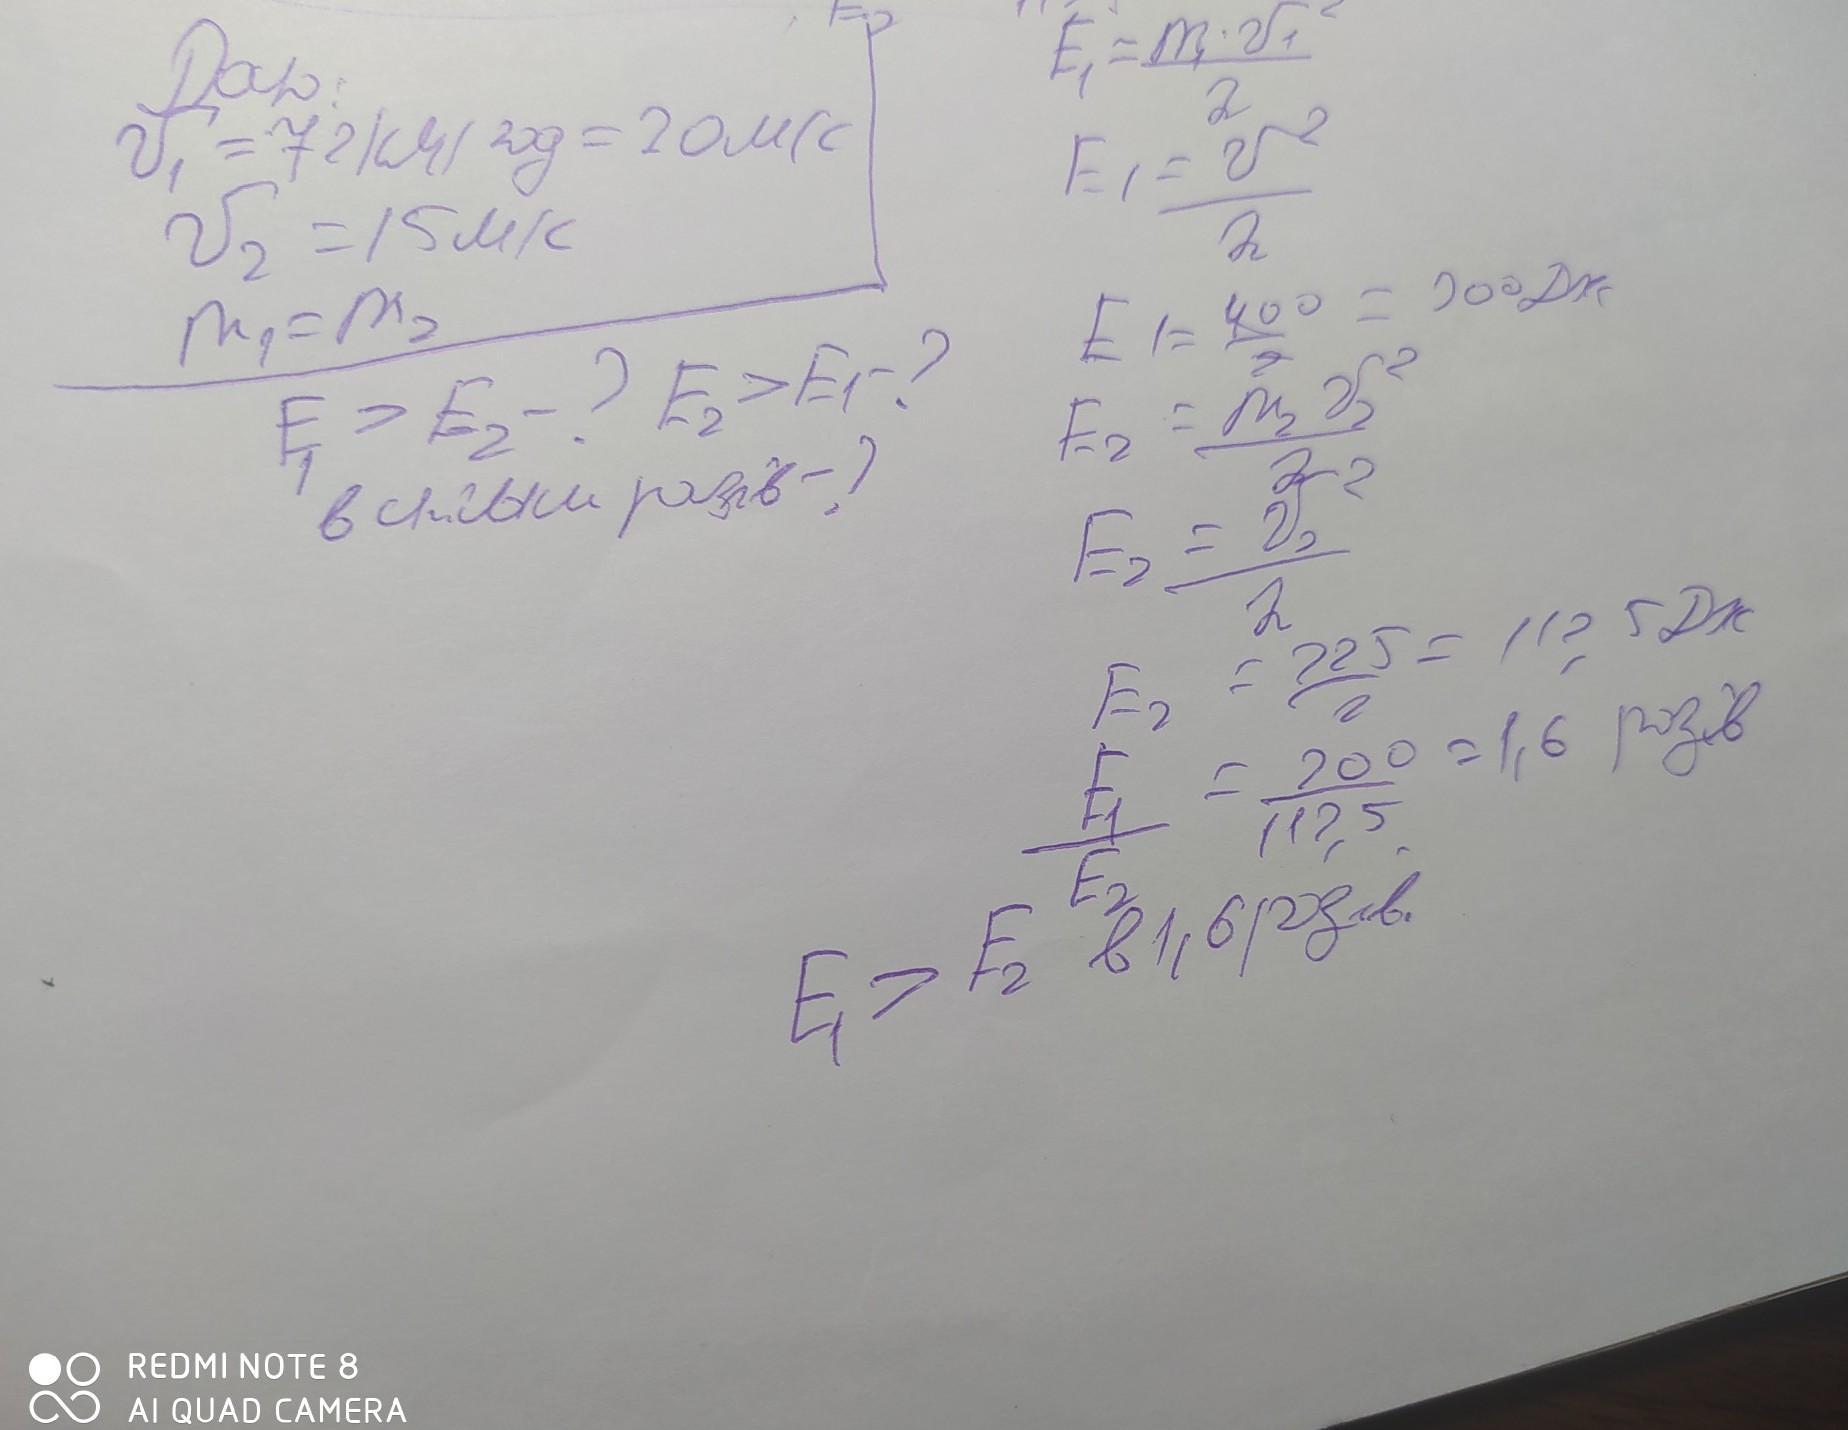 E₂
Дано:
v₁ = 72 км/год = 20 м/с
v₂ = 15 м/с
m₁ = m₂
E₁ > E₂ - ? E₂ > E₁ - ?
в скільки разів - ?
E₁ = m₁ · v₁² / 2
E₁ = v² / 2
E₁ = 400 / 2 = 200 Дж
E₂ = m₂ v₂² / 2
E₂ = v₂² / 2
E₂ = 225 / 2 = 112,5 Дж
E₁ / E₂ = 200 / 112,5 = 1,6 разів
E₁ > E₂ в 1,6 разів.
REDMI NOTE 8
AI QUAD CAMERA